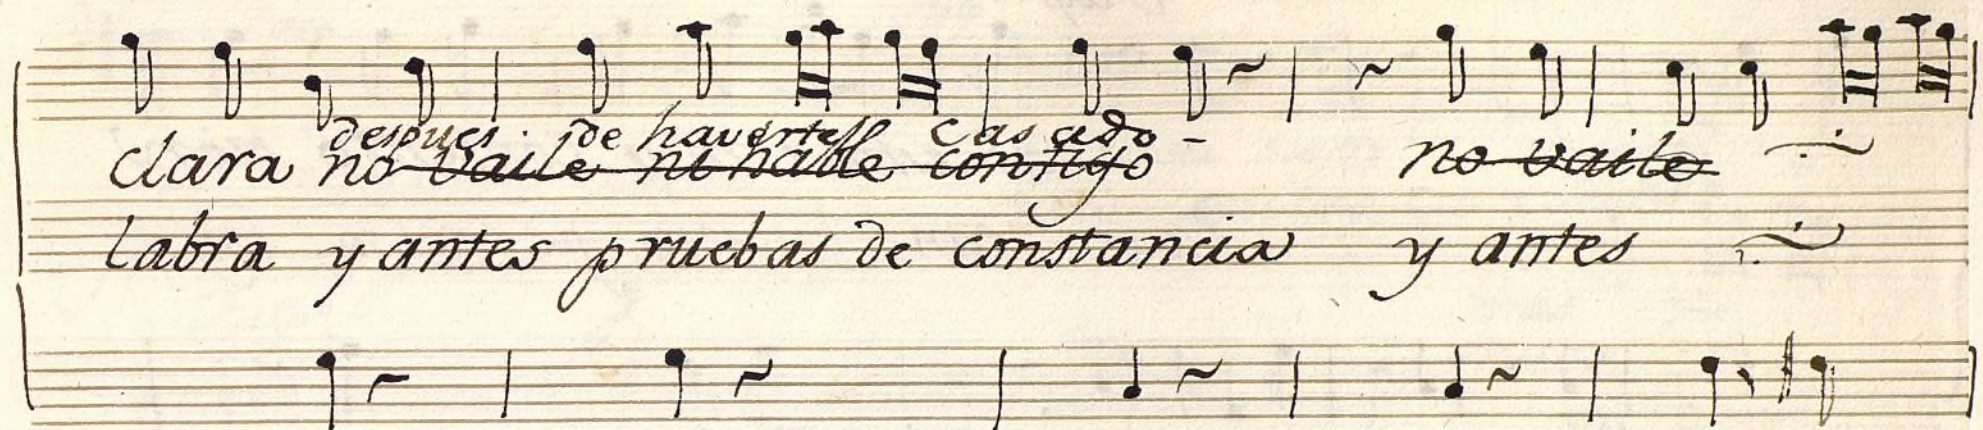 despues de haverte casado -
clara no vaile ni hable contigo no vaile
labra y antes pruebas de constancia y antes